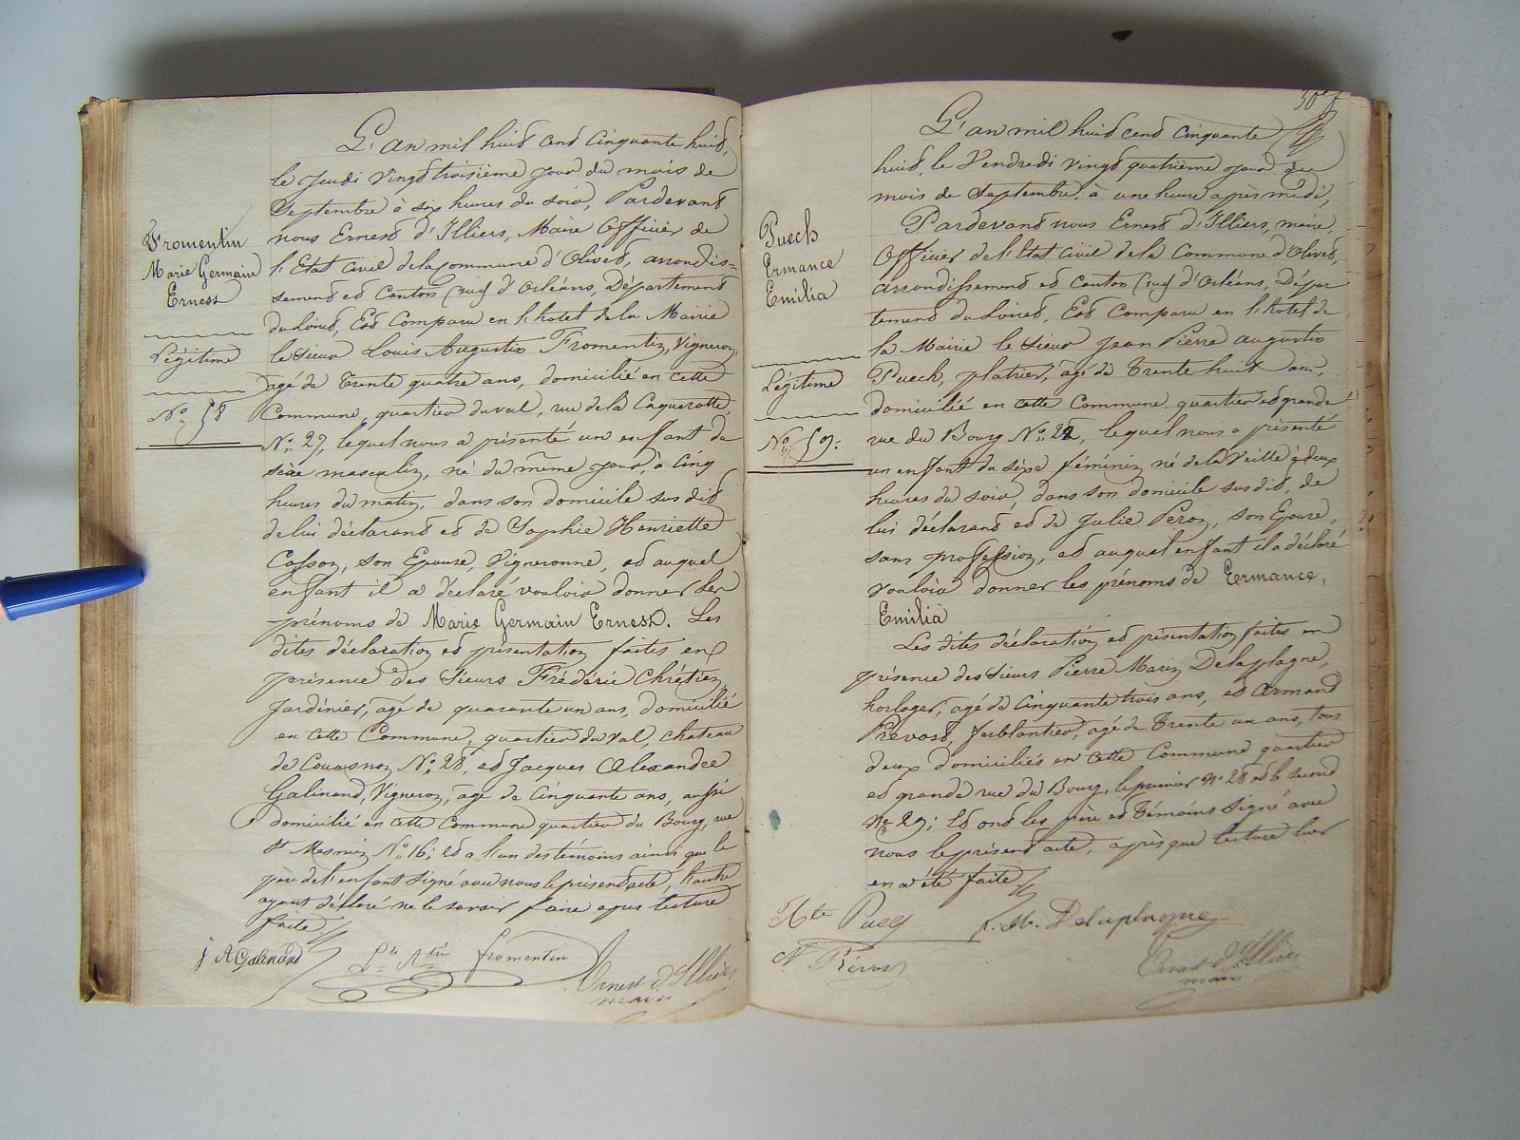 Fromentin
Marie Germain
Ernest
Légitime
No. 58
L'an mil huit cent cinquante huit,
le Jeudi vingt troisième jour du mois de
Septembre à six heures du soir, Pardevant
nous Ernest d'Illiers, Maire Officier de
l'Etat civil de la Commune d'Olivet, arrondis=
sement et Canton (sud) d'Orléans, Département
du Loiret, Est Comparu en l'hotel de la Mairie
le Sieur Louis Augustin Fromentin, Vigneron,
agé de Trente quatre ans, domicilié en cette
Commune, quartier du val, rue de la Caquerotte
No. 27, lequel nous a présenté un enfant du
sèxe masculin, né du même jour, à Cinq
heures du matin, dans son domicile sus dit
de lui déclarant et de Sophie Henriette
Cosson, son Epouse, Vigneronne, et auquel
enfant il a déclaré vouloir donner les
prénoms de Marie Germain Ernest. Les
dites déclaration et présentation faites en
présence des Sieurs Frédéric Chrétien,
Jardinier, agé de quarante un ans, domicilié
en cette Commune, quartier du val, chateau
de Couasnon No. 28, et Jacques Alexandre
Galinand, Vigneron, agé de Cinquante ans, aussi
domicilié en cette Commune quartier du Bourg, rue
St Mesmin No. 16; Et a l'un des témoins ainsi que le
père de l'enfant signé avec nous le présent acte, l'autre
ayant déclaré ne le savoir faire après lecture
faite
j A Galinand
Ls Atin fromentin
Ernest d'Illiers
maire
Puech
Ermance
Emilia
Légitime
No. 59.
L'an mil huit cent cinquante
huit, le Vendredi vingt quatrième jour du
mois de Septembre, à une heure après midi,
Pardevant nous Ernest d'Illiers, maire,
Officier de l'Etat Civil de la Commune d'Olivet,
arrondissement et canton (sud) d'Orléans, Dépar
tement du Loiret, Est Comparu en l'hotel de
la Mairie le Sieur Jean Pierre augustin
Puech, platrier, agé de Trente huit ans,
domicilié en cette Commune quartier et grande
rue du Bourg No. 22, lequel nous a présenté
un enfant du sèxe féminin né de la Veille à deux
heures du soir, dans son domicile sus dit, de
lui déclarant et de Julie Peron, son Epouse,
sans profession, et auquel enfant il a déclaré
vouloir donner les prénoms de Ermance,
Emilia
Les dites déclaration et présentation faites en
présence des Sieurs Pierre Marin Delaplagne,
horloger, agé de Cinquante trois ans, et Armand
Prévost, ferblantier, agé de Trente un ans, tous
deux domiciliés en cette Commune quartier
et grande rue du Bourg, le premier No 28 et le second
No 29; Et ont les père et Témoins signé avec
nous le présent acte, après que lecture leur
en a été faite
Puech
P. M. Delaplagne
Ernest d'Illiers
maire